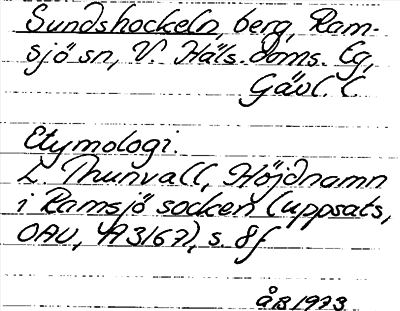 Sundshockeln, berg, Ram-
sjö sn, V. Häls. doms. Eg,
Gävl. l.
Etymologi.
L. Thunvall, Höjdnamn
i Ramsjö socken (uppsats,
OAU, A3167), s. 8f
ÅB 1973